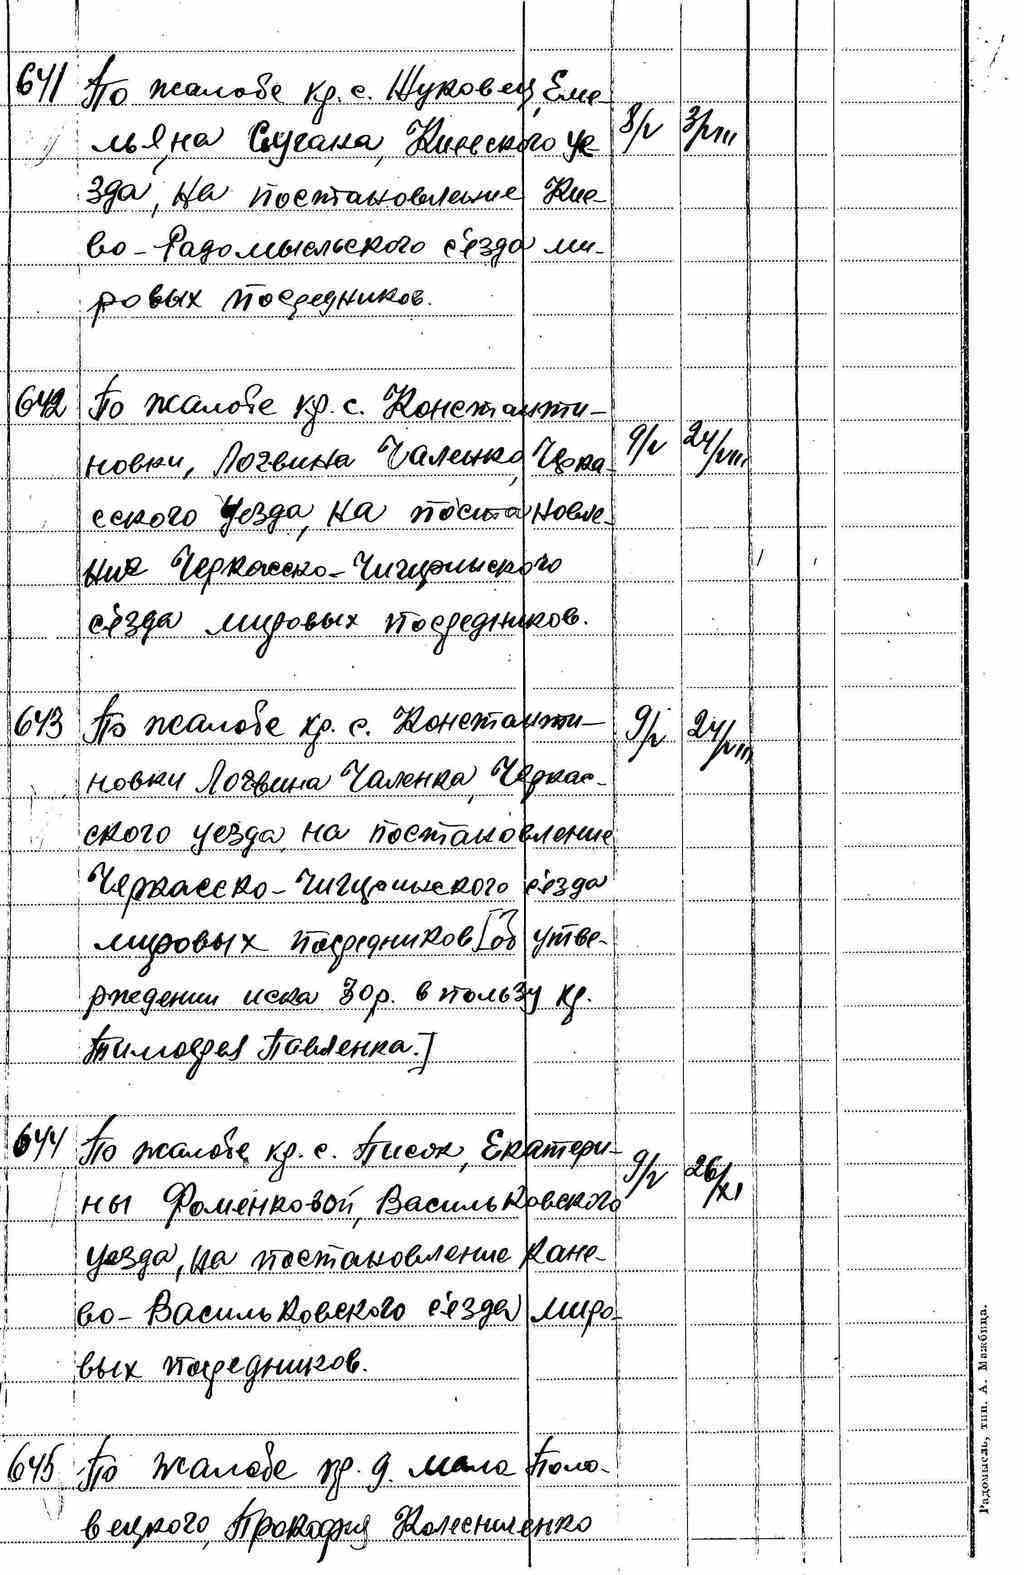 641 По жалобе кр. с. Шуковец, Еме-
льяна Слугана, Киевского уе- 8/V 3/VIII
зда, на постановление Кие-
во-Радомысльского с'езда ми-
ровых посредников.
642 По жалобе кр. с. Константи-
новки, Логвина Чаленко, Черка- 9/V 24/VIII
сского уезда, на постановле-
ние Черкасско-Чигиринского
с'езда мировых посредников.
643 По жалобе кр. с. Константи- 9/V 24/VIII
новки Логвина Чаленка, Черкас-
ского уезда, на постановление
Черкасско-Чигиринского с'езда
мировых посредников [об утве-
рждении иска 30р. в пользу кр.
Тимофея Павленка.]
644 По жалобе кр. с. Писок, Екатери-
ны Фоменковой, Васильковского 9/V 26/XI
уезда, на постановление Кане-
во-Васильковского с'езда миро-
вых посредников.
645 По жалобе кр. д. Мало Поло-
вецкого, Прокофия Колесниленко
Радомысль, тип. А. Мажбица.